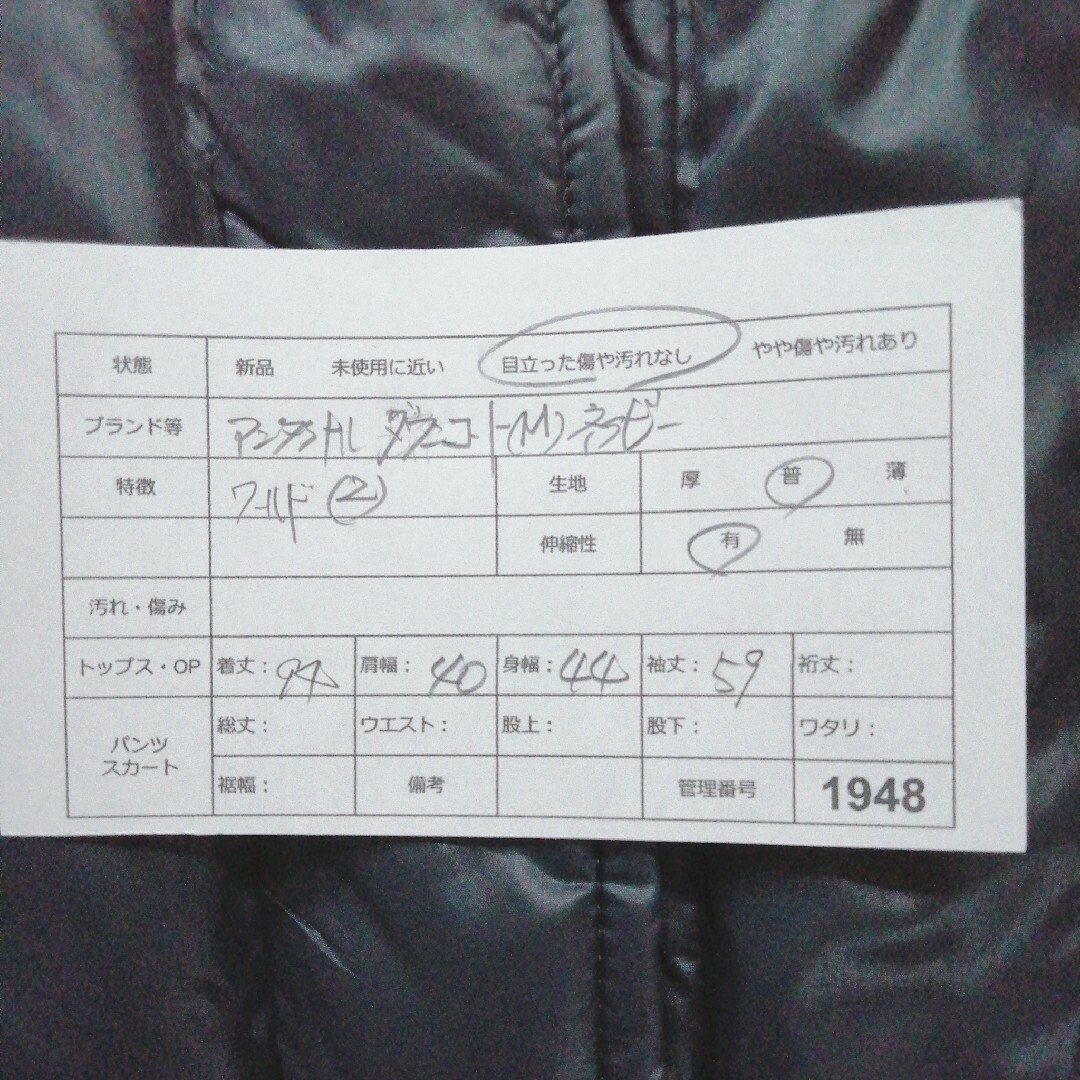 状態 新品 未使用に近い 目立った傷や汚れなし やや傷や汚れあり
ブランド等 アンタイトル ダウンコート(M) ネイビー
特徴 ワールド② 生地 厚 普 薄
伸縮性 有 無
汚れ・傷み
トップス・OP 着丈：94 肩幅：40 身幅：44 袖丈：59 裄丈：
パンツ スカート 総丈： ウエスト： 股上： 股下： ワタリ：
裾幅： 備考 管理番号 1948